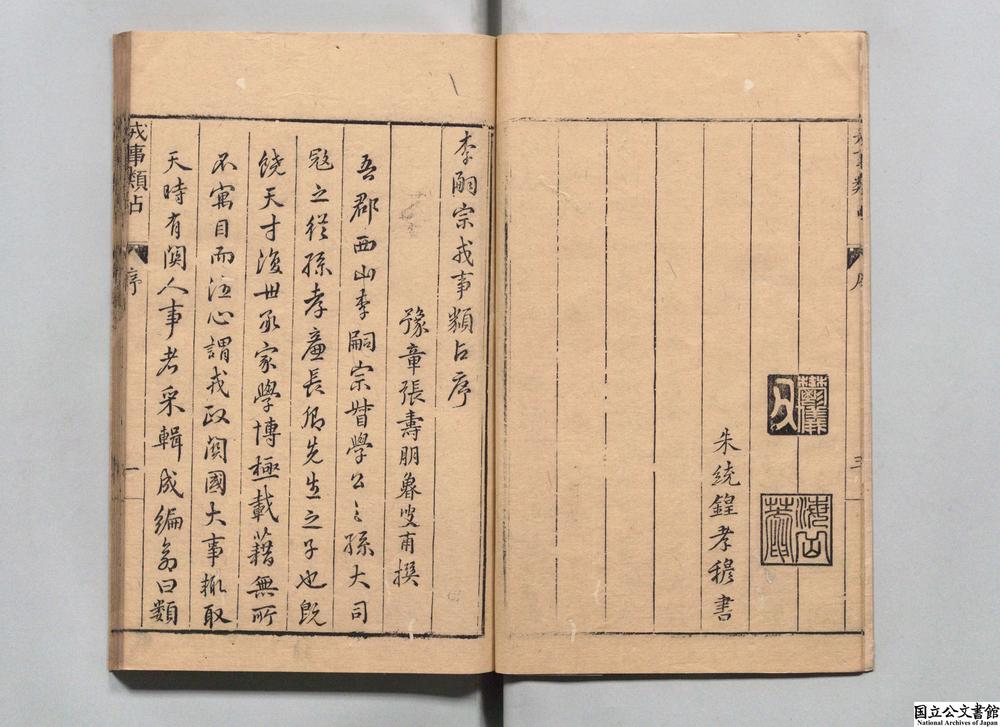 朱統鍠孝穆書
三
李嗣宗戎事類占序
豫章張壽朋魯叟甫撰
吾郡西山李嗣宗督學公〻孫大司
寇之從孫孝廉長卿先生之子也既
饒天才復世承家學博極載藉無所
不寓目而注心謂戎政関國大事輒取
天時有関人事者采輯成編命曰類
戎事類占
序
一
国立公文書館
National Archives of Japan